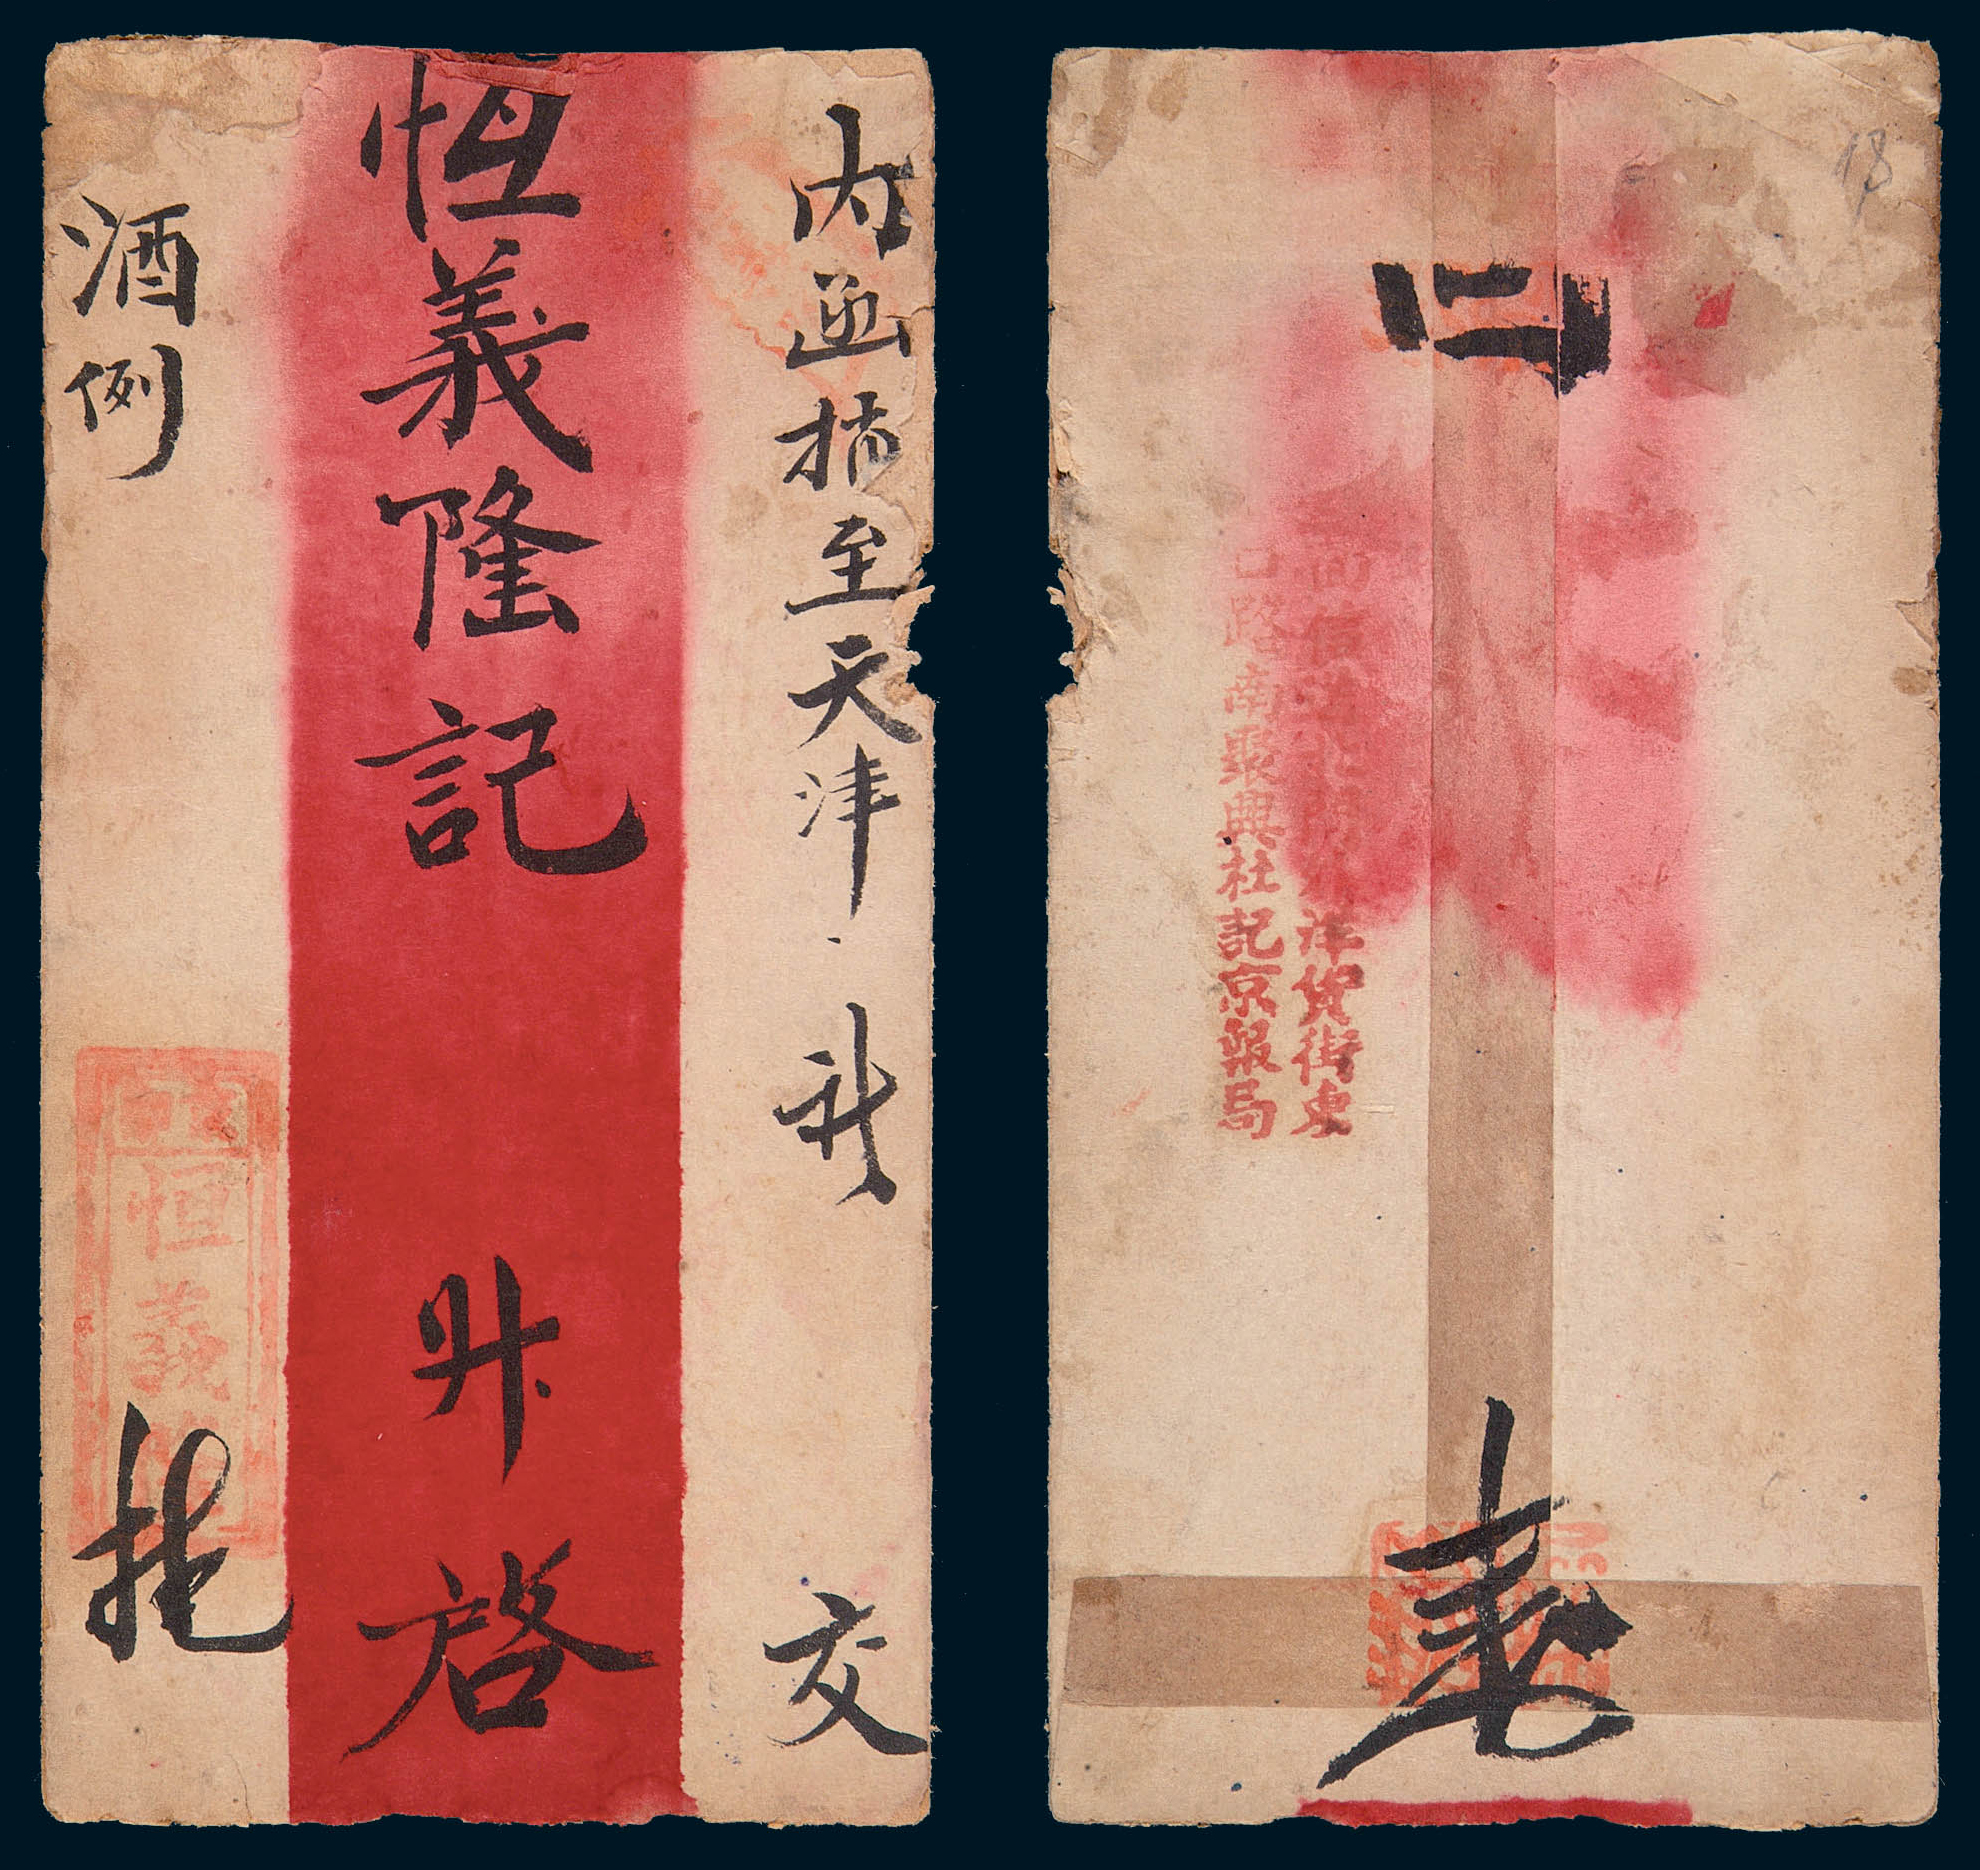 内函捎至天津
升
交
恆義隆記
升啓
酒例
托
恒義
洋貨街東
口路南聚興社記京報局
18